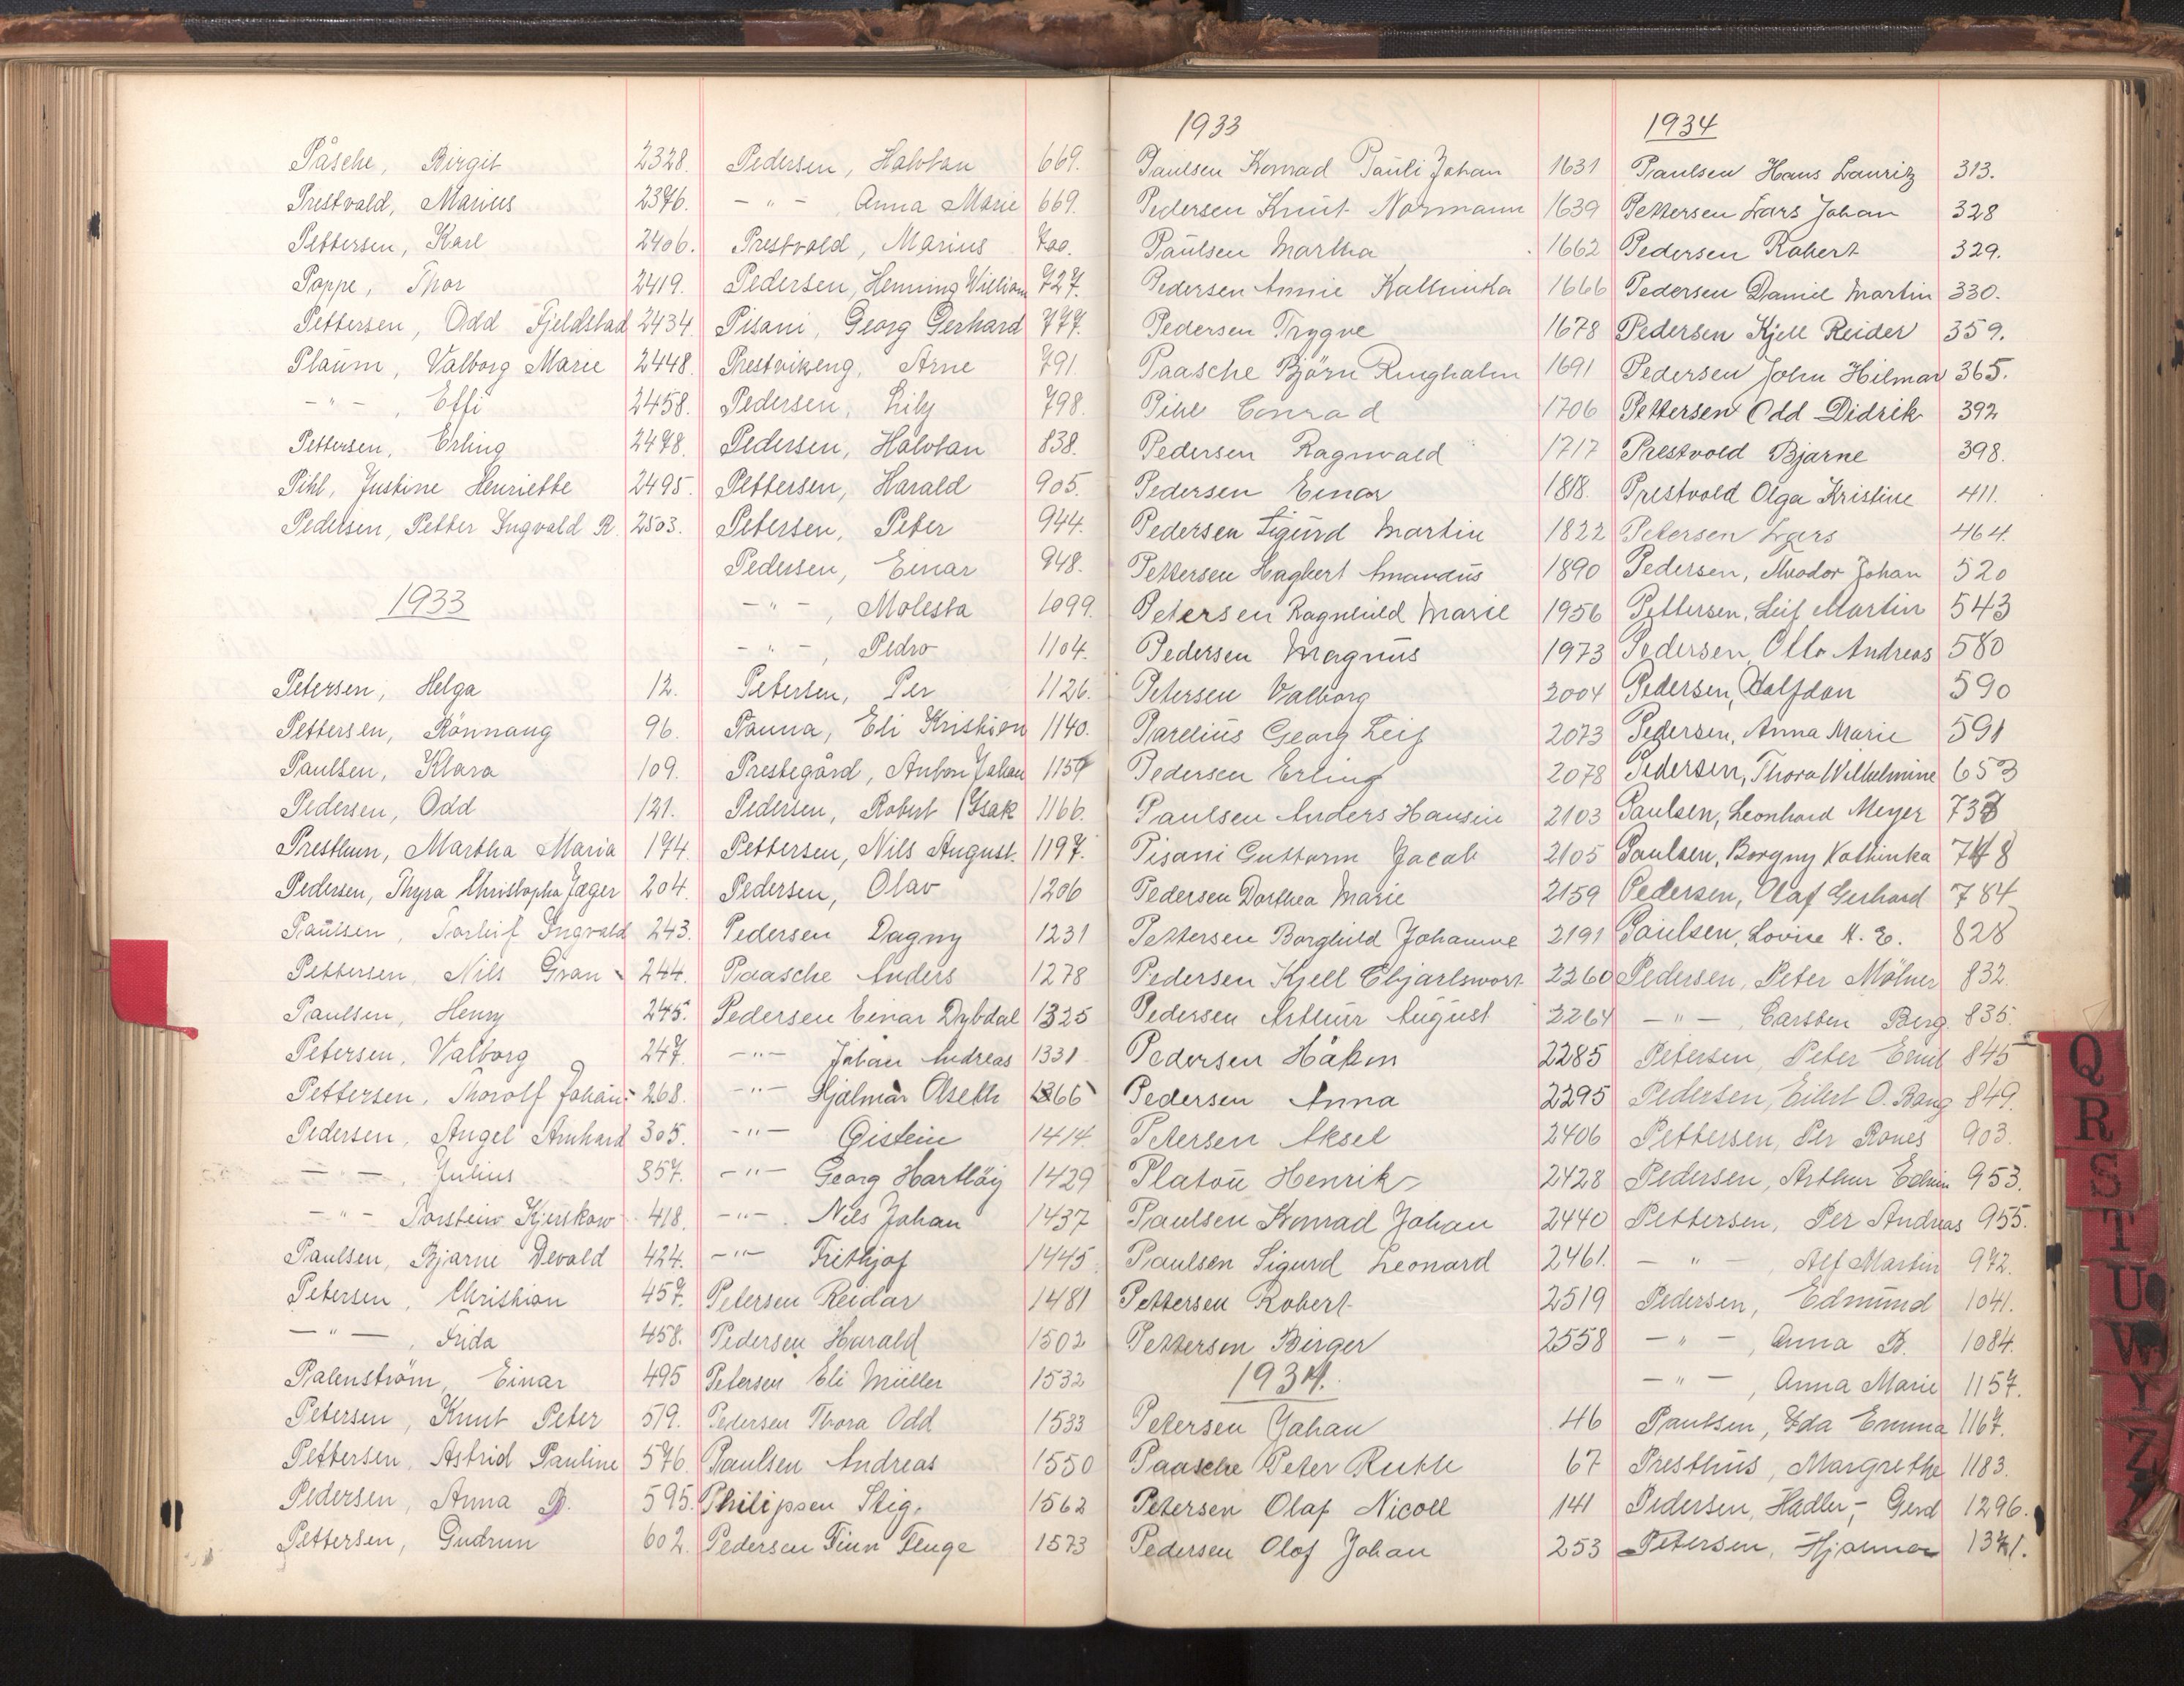 Påsche, Birgit 2328.
Prestvald, Marius 2376.
Pettersen, Karl 2406.
Poppe, Thor 2419.
Pettersen, Odd Fjeldstad 2434
Plaum, Valborg Marie 2448.
- " - , Effi 2458.
Pettersen, Erling 2478.
Pihl, Justine Henriette 2495.
Pedersen, Petter Ingvald R. 2503.
1933
Petersen, Helga 12.
Pettersen, Rönnaug 96.
Paulsen, Klara 109.
Pedersen, Odd 121.
Presthun, Martha Maria 174.
Pedersen, Thyra Christopha Jæger 204.
Paulsen, Torleif Ingvald 243.
Pettersen, Nils Gran 244.
Paulsen, Henry 245.
Petersen, Valborg 247.
Pettersen, Thorolf Johan 268.
Pedersen, Angel Arnhard 305.
- " - , Julius 357.
- " - Torstein Kjerskow 418.
Paulsen, Bjarne Devald 424.
Petersen, Christian 457.
- " - , Frida 458.
Palenström, Einar 495
Petersen, Knut Peter 519.
Pettersen, Astrid Pauline 576.
Pedersen, Anna B. 595.
Pettersen, Gudrun 602.
Pedersen, Halvtan 669.
- " - Anna Marie 669.
Prestvold, Marius 700.
Pedersen, Henning William 727.
Pisani, Georg Gerhard 777.
Prestvikeng, Arne 791.
Pedersen, Lily 798.
Pedersen, Halvtan 838.
Pettersen, Harald 905.
Petersen, Peter 944.
Pedersen, Einar 948.
- " - , Molesta 1099.
- " - , Pedro 1104.
Petersen, Per 1126.
Panna, Eli Kristian 1140.
Prestegård, Anton Johan 1159
Pedersen, Robert Isak 1166.
Pettersen, Nils August. 1197.
Pedersen, Olav 1206
Pedersen Dagny 1231
Paasche Anders 1278
Pedersen Einar Dybdal 1325
- " - Johan Andreas 1331
- " - Hjalmar Olseth 1366
- " - Öistein 1414
- " - Georg Hartløy 1429
- " - Nils Johan 1437
- " - Frithjof 1445
Petersen Reidar 1481
Pedersen Harald 1502
Petersen Eli Müller 1532
Pedersen Thora Odd 1533
Paulsen Andreas 1550
Philipsen Stig. 1562
Pedersen Finn Fluge 1573
1933
Paulsen Konrad Pauli Johan 1631
Pedersen Knut Normann 1639
Paulsen Martha 1662
Pedersen Annie Kathinka 1666
Pedersen Trygve 1678
Paasche Björn Ringholm 1691
Pihl Conrad 1706
Pedersen Ragnvald 1717
Pedersen Einar 1818.
Pedersen Sigurd Martin 1822
Pettersen Hagbert Amandus 1890
Petersen Ragnhild Marie 1956
Pedersen Magnus 1973
Petersen Valborg 2004
Parelius Georg Leif 2073
Pedersen Erling 2078
Paulsen Anders Hansin 2103
Pisani Guttorm Jacob 2105
Pedersen Dorthea Marie 2159
Pettersen Borghild Johanne 2191
Pedersen Kjell 2260
Pedersen Arthur August 2264
Pedersen Håkon 2285
Pedersen Anna 2295
Petersen Aksel 2406
Platou Henrik 2428
Paulsen Konrad Johan 2440
Paulsen Sigurd Leonard 2461.
Pettersen Robert 2519
Pettersen Birger 2558
1934.
Petersen Johan 46
Paasche Peter Ruth 67
Petersen Olaf Nicoll 141
Pedersen Olof Johan 253
1934
Paulsen Hans Lauritz 313.
Pettersen Lars Johan 328
Pedersen Robert 329.
Pedersen Daniel Martin 330.
Pedersen Kjell Reider 359.
Pedersen John Hilmar 365.
Pettersen Odd Didrik 392
Prestvold Bjarne 398.
Prestvold Olga Kristine 411.
Petersen Lars 464.
Pedersen, Theodor Johan 520
Pettersen, Leif Martin 543
Pedersen, Otto Andreas 580
Pedersen, Halfdan 590
Pedersen, Anna Marie 591
Pedersen, Thora Wilhelmine 653
Paulsen, Leonhard Meyer 737
Paulsen, Borgny Kathinka 748
Pedersen, Olaf Gerhard 784
Paulsen, Lovise A. E. 828
Pedersen, Peter Mölner 832.
- " - , Carsten Berg. 835.
Petersen, Peter Emil 845
Pedersen, Eilert O. Bang 849.
Pettersen, Per Rones 903.
Pedersen, Arthur Edvin 953.
Pettersen, Per Andreas 955.
- " - , Alf Martin 972.
Pedersen, Edmund 1041.
- " - , Anna B. 1084.
- " - , Anna Marie 1157.
Paulsen, Ida Emma 1167.
Presthus, Margrethe 1183.
Pedersen, Hadler-, Gerd 1296.
Petersen, Hjalmar 1371.
Q
R
S
T
U
W
Y
Z